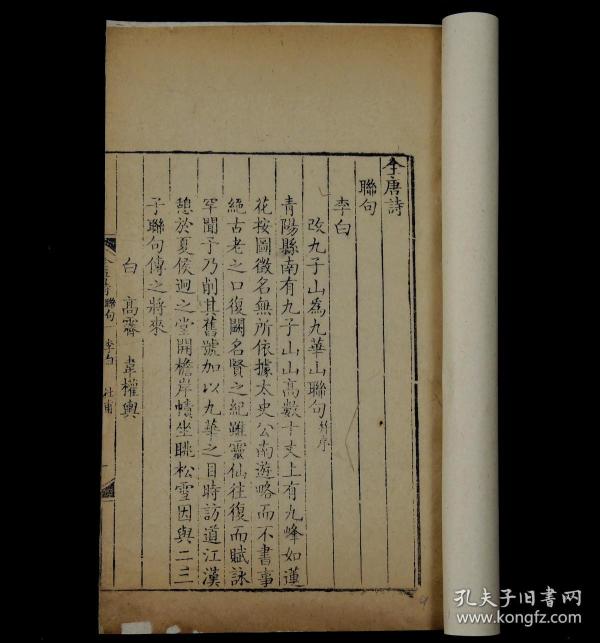 全唐詩
聯句
李白
改九子山為九華山聯句并序
青陽縣南有九子山山高數十丈上有九峰如蓮
花按圖徵名無所依據太史公南遊略而不書事
絕古老之口復闕名賢之紀雖靈仙往復而賦詠
罕聞予乃削其舊號加以九華之目時訪道江漢
憩於夏侯迴之堂開檐岸幘坐眺松雪因與二三
子聯句傳之將來
白 高霽 韋權輿
全唐詩 聯句一 李白 杜甫
孔夫子旧书网